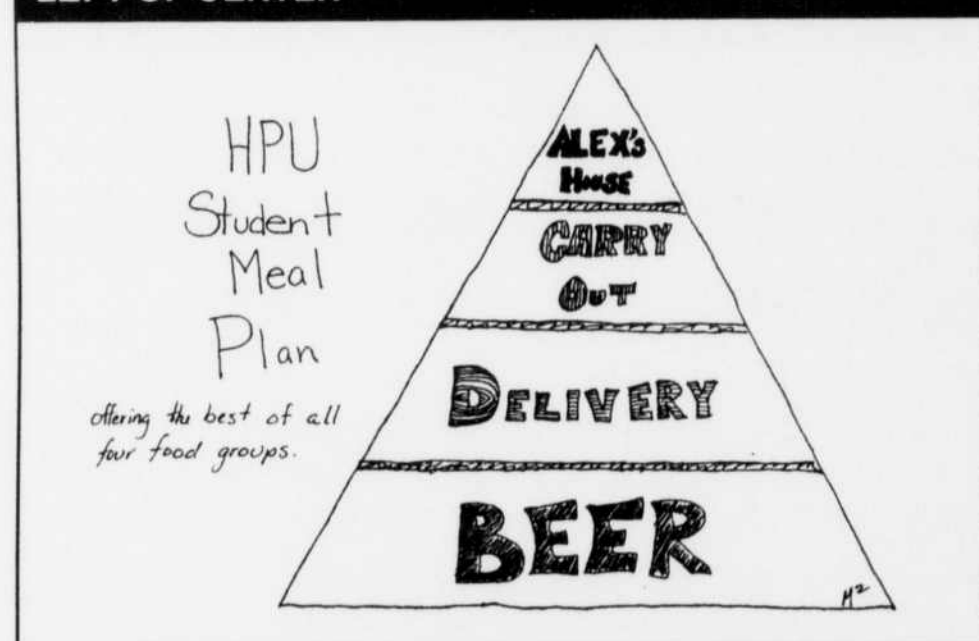 HPU
Student
Meal
Plan
offering the best of all
four food groups.
ALEX's
HOUSE
CARRY
OUT
DELIVERY
BEER
M²